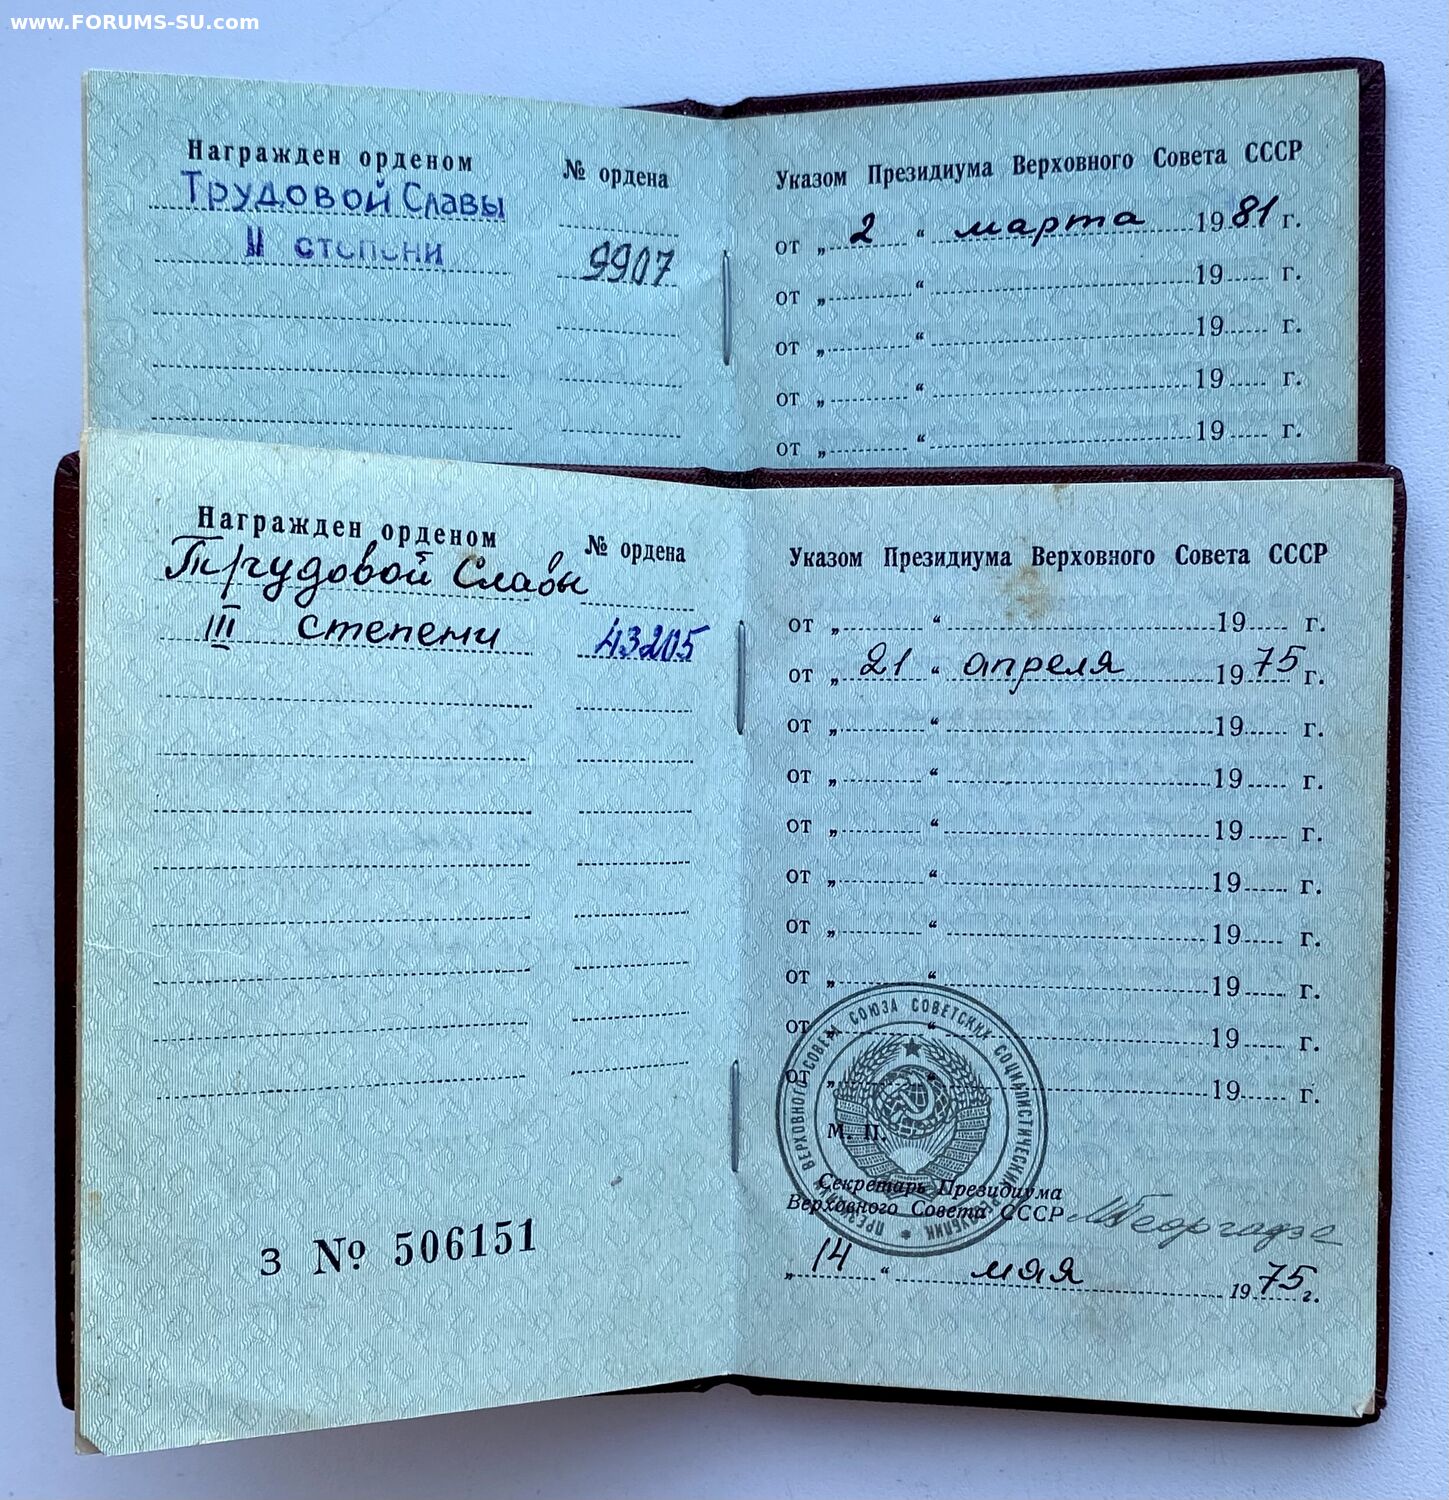 www.FORUMS-SU.com
Награжден орденом № ордена
Трудовой Славы
II степени 9907
Указом Президиума Верховного Совета СССР
от „ 2 “ марта 1981 г.
от „ “ 19 г.
от „ “ 19 г.
от „ “ 19 г.
от „ “ 19 г.
Награжден орденом № ордена
Трудовой Славы
III степени 43205
З № 506151
Указом Президиума Верховного Совета СССР
от „ “ 19 г.
от „ 21 “ апреля 1975 г.
от „ “ 19 г.
от „ “ 19 г.
от „ “ 19 г.
от „ “ 19 г.
от „ “ 19 г.
от „ “ 19 г.
от „ “ 19 г.
от „ “ 19 г.
ПРЕЗИДИУМ ВЕРХОВНОГО СОВЕТА СОЮЗА СОВЕТСКИХ СОЦИАЛИСТИЧЕСКИХ РЕСПУБЛИК
М. П.
Секретарь Президиума
Верховного Совета СССР МГеоргадзе
„ 14 “ мая 1975 г.